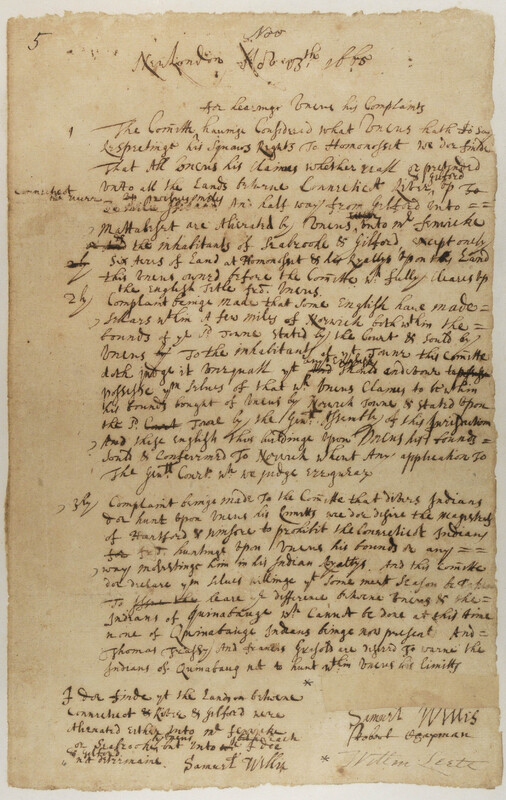 5
Nov
New London 1668
For hearinge Uncus his Complaints
1 The Comitte haueinge Considered what Uncus hath to say
Respectinge his Squaws Rights To Homonosset we doe finde
That All Uncus his Claimes whether reall or pretended
Connecticut unto all the Lands betwene Connecticut River, up To
An half way from Gilford unto ==
Mattabeset are Alienated by Uncus unto mr Fenwicke
the inhabitants of Seabrooke & Gilford, except only
six Acrs of Land at Homonosset & his Royalty upon the Land
this Uncus owned before the Comitte wch fully cleares up
the English Title Uncus.
2ly Complaint beinge made that some English have made =
within A few miles of Norwich both within the =
bounds of ye Towne stated by the Court & sould by
Uncus To the inhabitants of ye Towne this Comitte
doth judge it unequall yt any English should
possesse ym selves of that wch Uncus Claimes to be within
his bounds bought of Uncus by Norwich Towne & stated upon
the by the Genll Assembly of this Jurisdiction
And these English thus buildinge upon Uncus his bounds =
sould & Confirmed To Norwich without Any application To
The Genll Court we judge irregular
3ly Complaint beinge made To the Comitte that divers Indians
doe hunt upon Uncus his Limitts wee doe desire the magistrats
of Hartford & to prohibit the Connecticut Indians
huntinge upon Uncus his bounds or any ==
way molestinge him in his Indian Royaltys. And this Comitte
doe declare ym selves willinge yt some meet season be
To heare ye difference betwene Uncus & the =
Indians of Quinabauge wch Cannot be done at this time
none of Quinabauge Indians beinge now present And =
Thomas And Francis are desired To warne the
Indians of Quinabaug not to hunt within Uncus his Limitts
I doe finde yt the Lands betwene
Connecticut River & Gilford were
Alienated either unto mr Fenwick
or Seabrooke but unto I doe
& Gilford
not determaine. Samuel Willis
Samuel Willis
Robert Chapman
Willm Leete